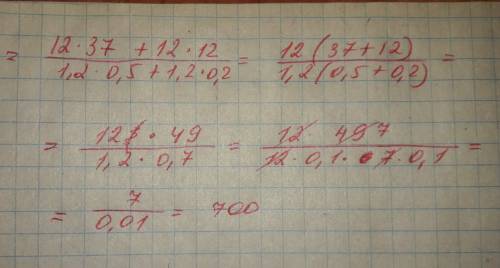 = (12·37 + 12·12)/(1,2·0,5 + 1,2·0,2) = 12(37+12)/(1,2(0,5+0,2)) =
= (12·49)/(1,2·0,7) = (12·49 7)/(12·0,1·7·0,1) =
= 7/0,01 = 700